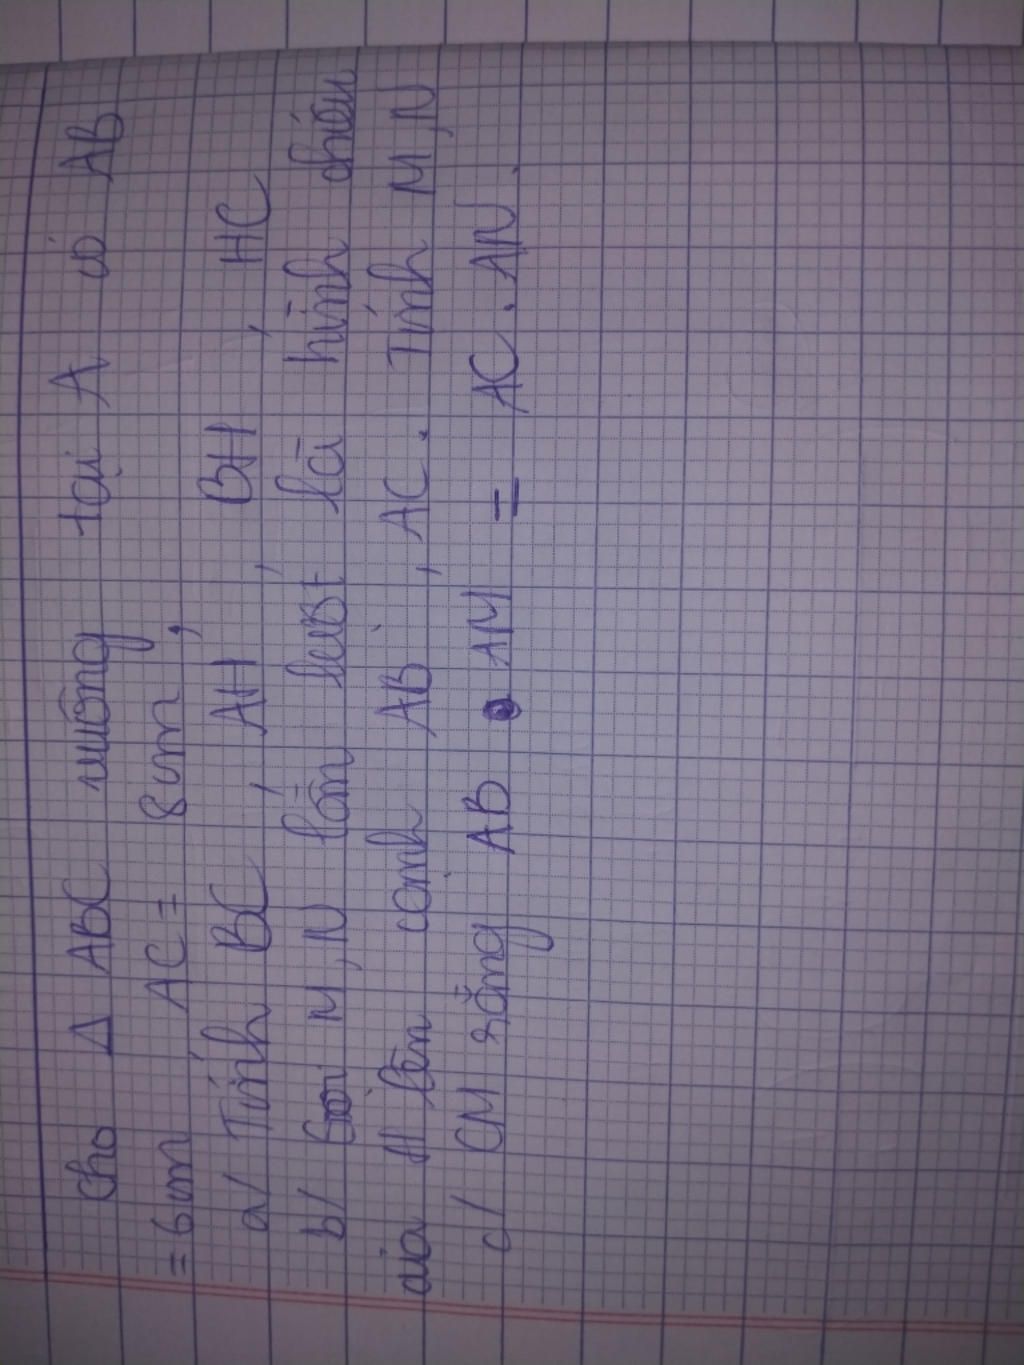 Cho Δ ABC vuông tại A có AB
= 6cm AC = 8cm,
a/ Tính BC, AH, BH, HC
b/ Gọi M, N lần lượt là hình chiếu
của H lên cạnh AB, AC. Tính M, N
c/ CM rằng AB . AM = AC . AN.